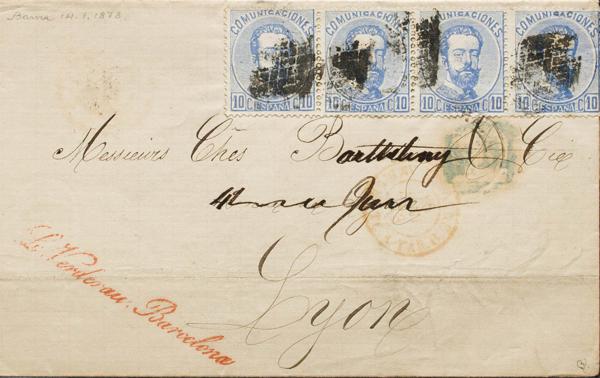 Barna 14.1.1873.
COMUNICACIONES COMUNICACIONES COMUNICACIONES COMUNICACIONES
10 C. ESPAÑA C. 10 10 C. ESPAÑA C. 10 10 C. ESPAÑA C. 10 10 C. ESPAÑA C. 10
Messieurs Ches Barthelmy & Cie
41 rue
Lyon
Verdereau. Barcelona